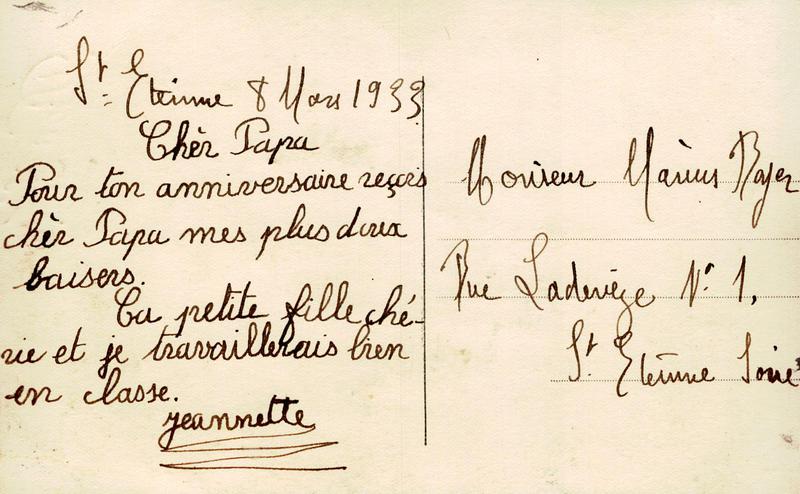 St Etienne 8 Mars 1933
Chèr Papa
Pour ton anniversaire reçois
chèr Papa mes plus doux
baisers.
Ta petite fille ché-
rie et je travaillerais bien
en classe.
jeannette
Monsieur Màrius Royer
Rue Ladevèze N° 1.
St Etienne Loire